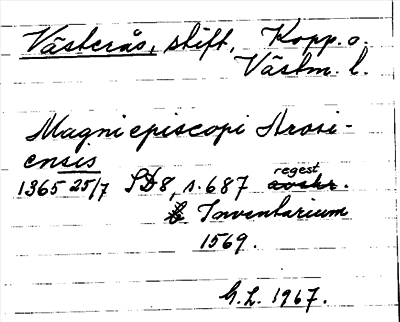 Västerås, stift, Kopp. o.
Västm. l.
Magni episcopi Arosi-
ensis
1365 25/7 SD8, s. 687 regest
Inventarium
1569.
G.L. 1967.